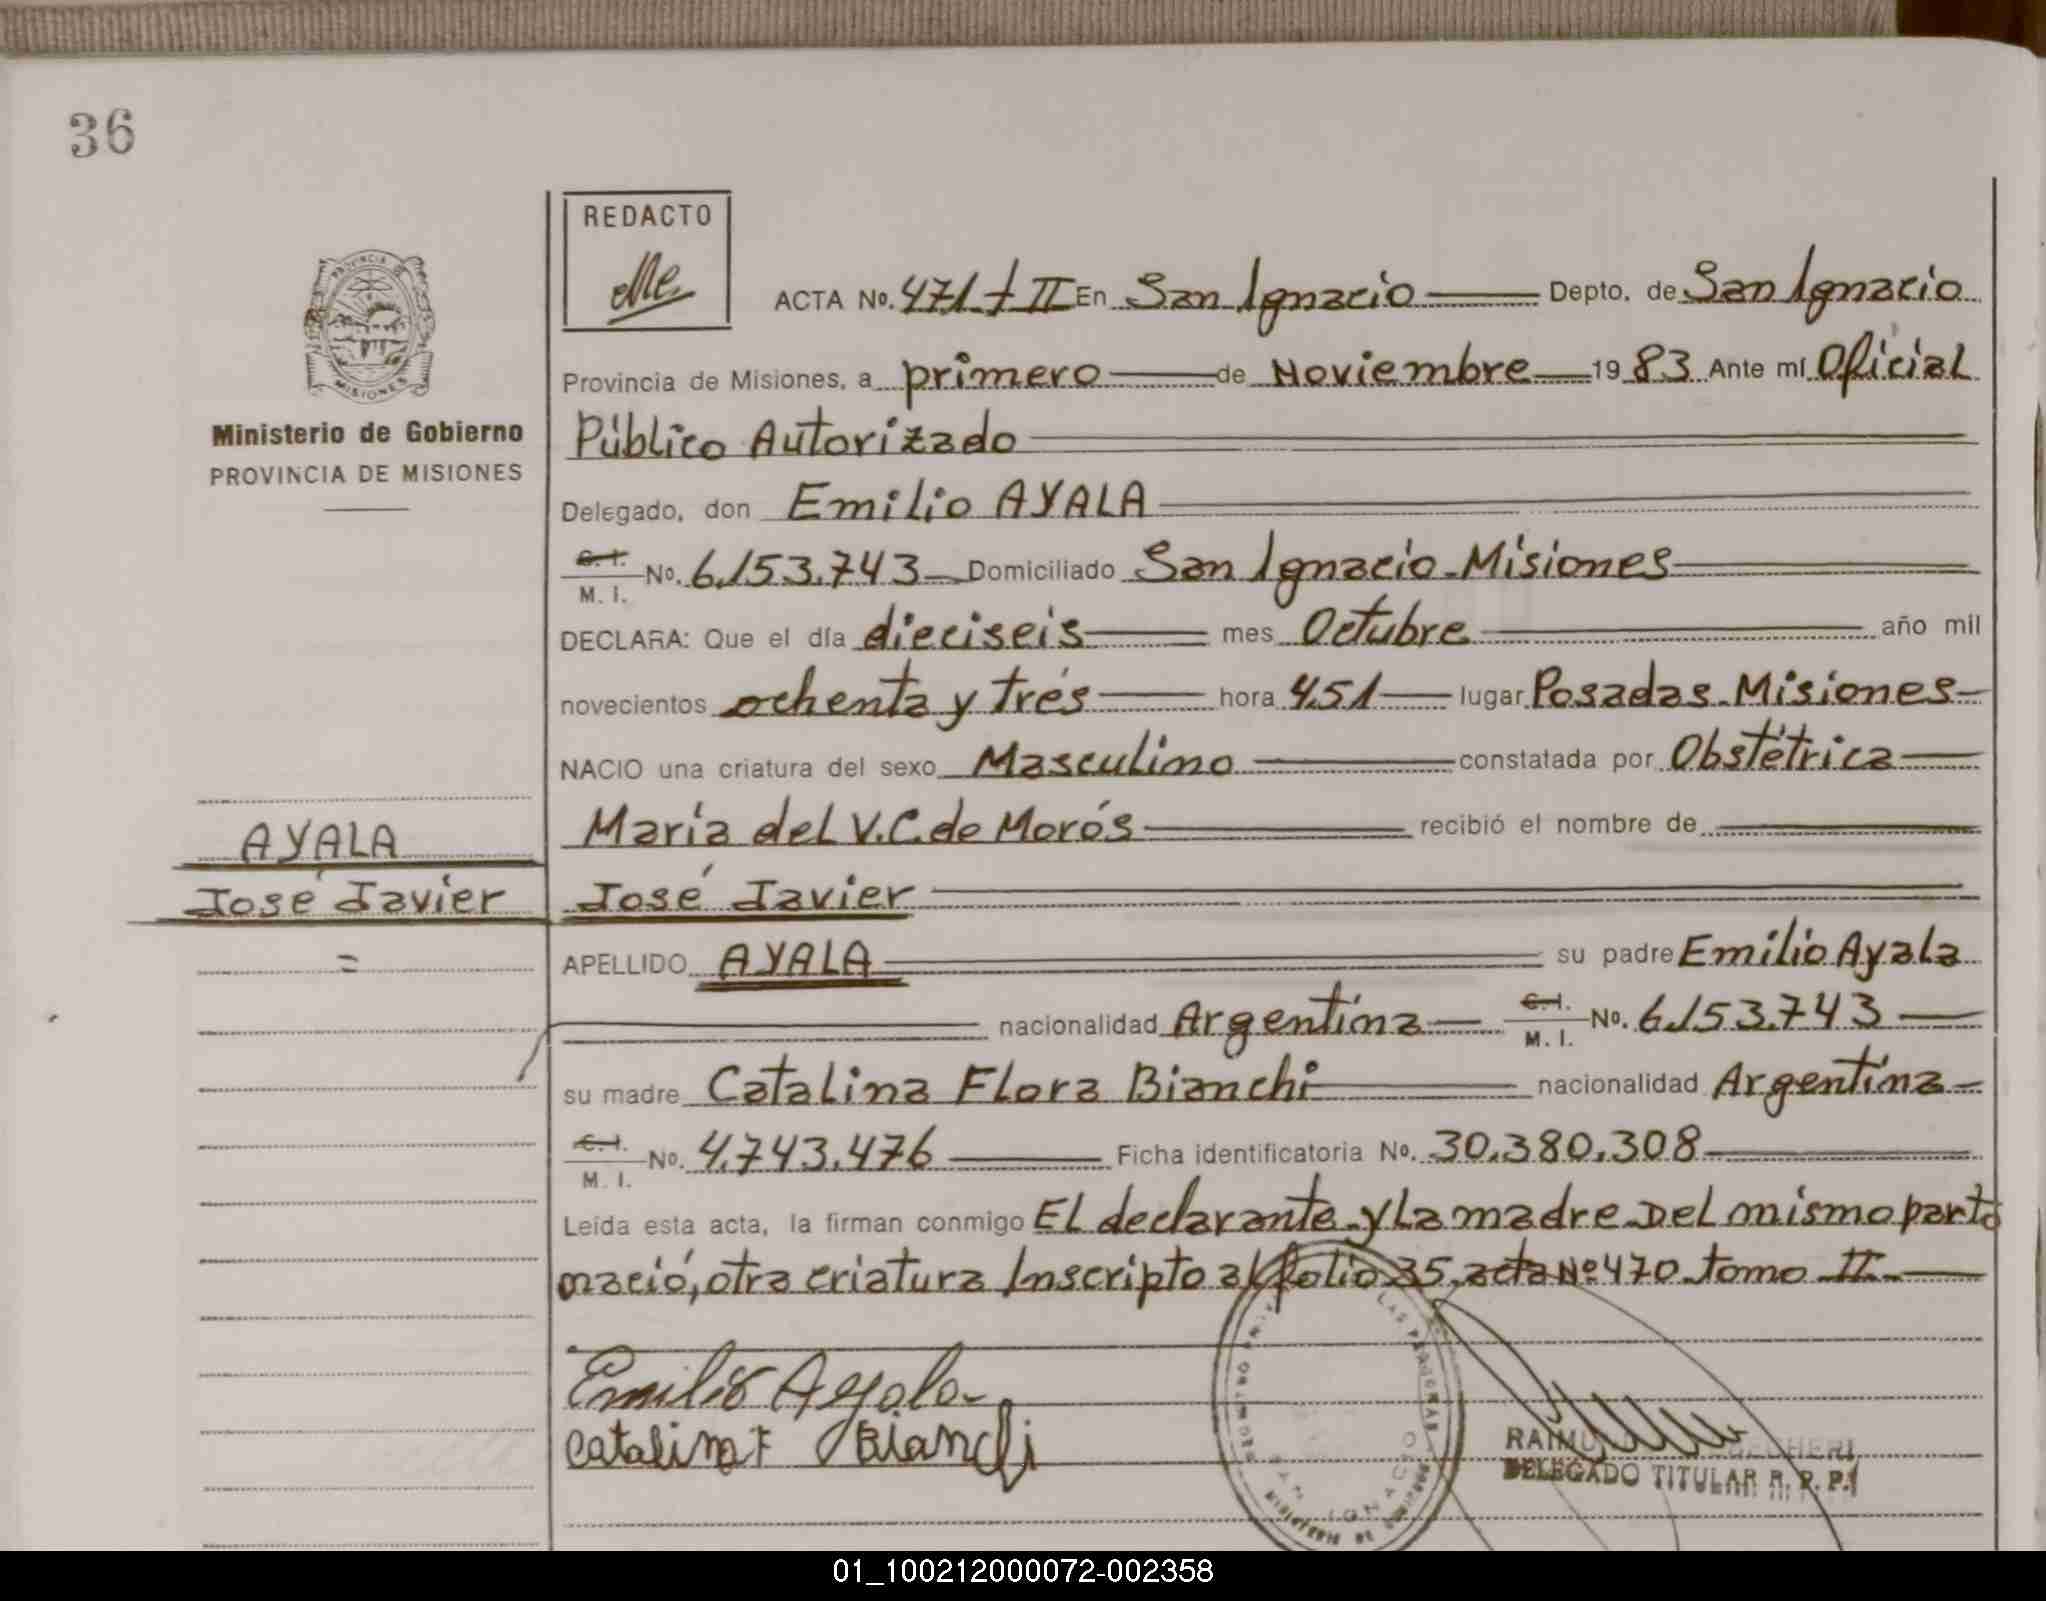 36
REDACTO
ACTA No. 471 - t II En San Ignacio Depto. de San Ignacio
Provincia de Misiones, a primero de Noviembre 1983 Ante mí Oficial
Público Autorizado
Delegado, don Emilio AYALA
C. I.
M. I. No. 6.153.743 Domiciliado San Ignacio - Misiones
DECLARA: Que el día dieciseis mes Octubre año mil
novecientos ochenta y trés hora 4.51 lugar Posadas - Misiones
NACIO una criatura del sexo Masculino constatada por Obstétrica
María del V. C. de Morós recibió el nombre de
José Javier
APELLIDO AYALA su padre Emilio Ayala
nacionalidad Argentina C. I. M. I. No. 6.153.743
su madre Catalina Flora Bianchi nacionalidad Argentina
C. I.
M. I. No. 4.743.476 Ficha identificatoria No. 30.380.308
Leída esta acta, la firman conmigo El declarante y La madre - Del mismo parto
nació, otra criatura Inscripto al folio 35, acta Nº 470 tomo II
Emilio Ayala
Catalina F Bianchi
PROVINCIA DE
MISIONES
Ministerio de Gobierno
PROVINCIA DE MISIONES
AYALA
José Javier
=
REGISTRO DE LAS PERSONAS
SAN IGNACIO
MINISTERIO DE GOBIERNO
DELEGADO TITULAR R. P. P.
01_100212000072-002358